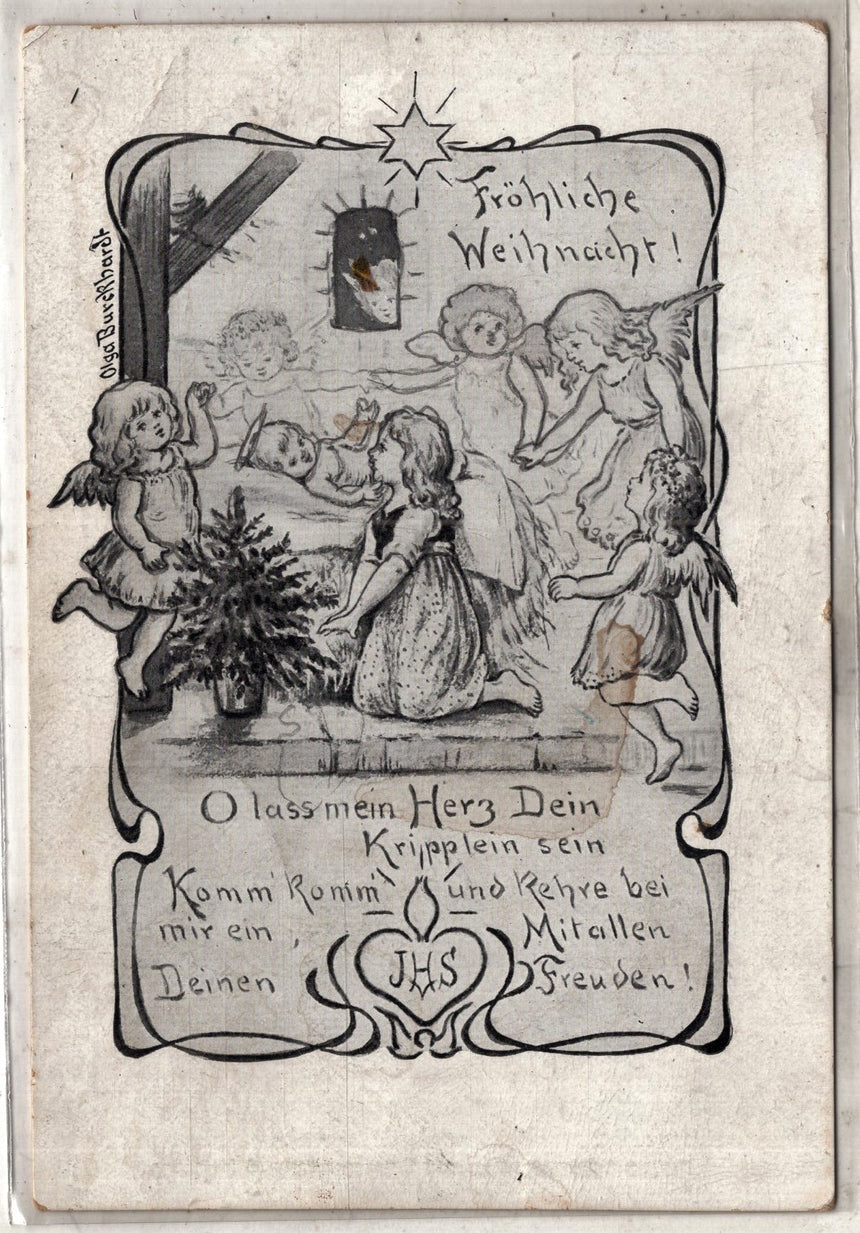 Fröhliche
Weihnacht!
Olga Burckhardt
O lass mein Herz Dein
Kripplein sein
Komm' komm' und kehre bei
mir ein, Mit allen
Deinen Freuden!
JHS